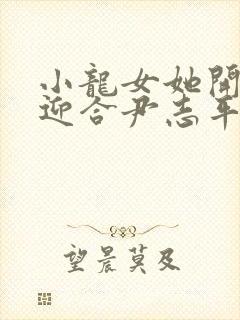 小龍女她開
迎合尹志平
望晨莫及